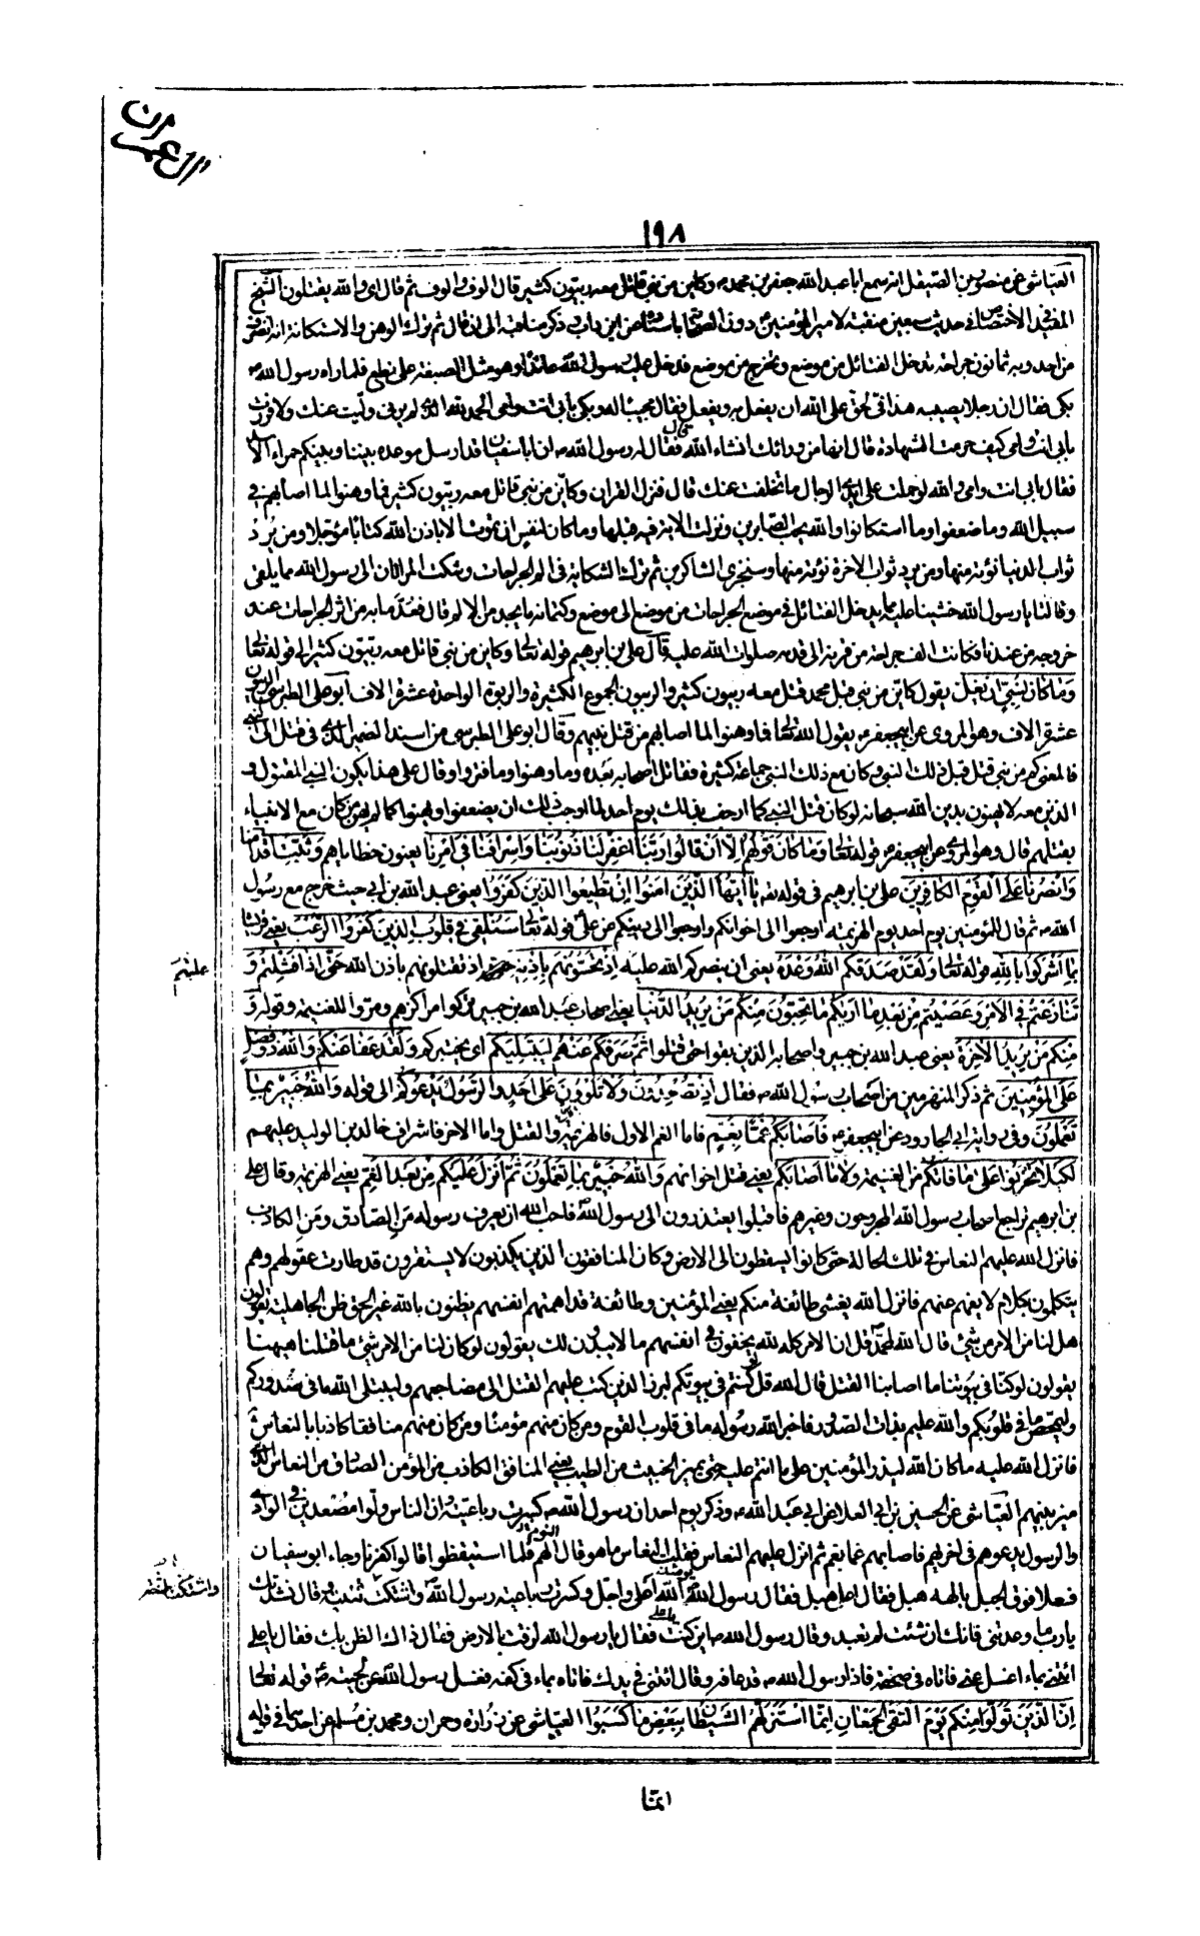 ال عمران
١٩٨
العياشي عن منصور بن الصيقل انه سمع ابا عبد الله جعفر بن محمد وكاين من نبي قاتل معه ربيون كثير قال الوف والوف ثم قال اي والله يقتلون الشيخ
المفيد في الاختصاص في حديث سبعين منقبة لامير المؤمنين دون الصحابة باسناده عن ابن داب وذكر مناقبه الى ان قال ثم ترك الوهن والاستكانة انه انصرف
من احد وبه ثمانون جراحة تدخل الفتائل من موضع وتخرج من موضع فدخل عليه رسول الله عائدا وهو مثل المضغة على نطع فلما راه رسول الله
بكى فقال ان رجلا يصيبه هذا في الله لحق على الله ان يفعل به ويفعل فقال مجيبا له وبكى بابي انت وامي الحمد لله الذي لم يرني وليت عنك ولا فررت
بابي انت وامي كيف حرمت الشهادة قال انها من ورائك انشاء الله فقال له رسول الله ان ابا سفيان قد ارسل موعده بيننا وبينكم حمراء الاسد
فقال بابي انت وامي والله لو حملت على ايدي الرجال ما تخلفت عنك قال فنزل القران وكاين من نبي قاتل معه ربيون كثير فما وهنوا لما اصابهم في
سبيل الله وما ضعفوا وما استكانوا والله يحب الصابرين ونزلت الاية فيه قبلها وما كان لنفس ان تموت الا باذن الله كتابا مؤجلا ومن يرد
ثواب الدنيا نؤته منها ومن يرد ثواب الاخرة نؤته منها وسنجزي الشاكرين ثم ترك الشكاية في الم الجراحات وشكت المراتان الى رسول الله ما يلقى
وقالتا يا رسول الله خشينا عليه مما يدخل الفتائل في موضع الجراحات من موضع الى موضع وكتمانه ما يجد من الالم قال فعد ما به من اثر الجراحات عند
خروجه من عندنا فكانت الف جراحة من قرنه الى قدمه صلوات الله عليه قال علي بن ابرهيم قوله تعالى وكاين من نبي قاتل معه ربيون كثير الى قوله تعالى
وما كان لنبي ان يغل يقول كاين من نبي قبل محمد قتل معه ربيون كثير والربيون الجموع الكثيرة والربوة الواحدة عشرة الاف ابو علي الطبرسي الربيون
عشرة الاف وهو المروي عن ابي جعفر يقول الله تعالى فما وهنوا لما اصابهم من قتل نبيهم وقال ابو علي الطبرسي من اسند الضمير الذي في قتل الى نبي
فالمعنى كم من نبي قتل قبل ذلك النبي وكان مع ذلك النبي جماعة كثيرة فقاتل اصحابه بعده وما وهنوا وما فتروا وقال على هذا يكون النبي المقتول و
الذين معه لا يهنون بدين الله سبحانه لو كان قتل النبي كما ارجف بذلك يوم احد لما اوجب ذلك ان يضعفوا ويهنوا كما لم يهن من كان مع الانبياء
بقتلهم قال وهو المروي عن ابي جعفر قوله تعالى وما كان قولهم الا ان قالوا ربنا اغفر لنا ذنوبنا واسرافنا في امرنا يعنون خطاياهم وثبت اقدامنا
وانصرنا على القوم الكافرين علي بن ابرهيم في قوله يا ايها الذين امنوا ان تطيعوا الذين كفروا يعني عبد الله بن ابي حيث خرج مع رسول
الله ثم قال للمؤمنين يوم احد يوم الهزيمة ارجعوا الى اخوانكم وارجعوا الى دينكم عن علي قوله تعالى سنلقي في قلوب الذين كفروا الرعب يعني قريشا
بما اشركوا بالله قوله تعالى ولقد صدقكم الله وعده يعني ان ينصركم الله عليهم اذ تحسونهم باذنه اذ تقتلونهم باذن الله حتى اذا فشلتم و
عليهم
تنازعتم في الامر وعصيتم من بعد ما اريكم ما تحبون منكم من يريد الدنيا يعني اصحاب عبد الله بن جبير تركوا مراكزهم ومروا للغنيمة وقوله و
منكم من يريد الاخرة يعني عبد الله بن جبير واصحابه الذين بقوا حتى قتلوا ثم صرفكم عنهم ليبتليكم اي يختبركم ولقد عفا عنكم والله ذو فضل
على المؤمنين ثم ذكر المنهزمين من اصحاب رسول الله فقال اذ تصعدون ولا تلوون على احد والرسول يدعوكم الى قوله والله خبير بما
تعملون وفي رواية ابي الجارود عن ابي جعفر فاصابكم غما بغم فاما الغم الاول فالهزيمة والقتل واما الاخر فاشراف خالد بن الوليد عليهم
لكيلا تحزنوا على ما فاتكم من الغنيمة ولا ما اصابكم يعني قتل اخوانهم والله خبير بما تعملون ثم انزل عليكم من بعد الغم يعني الهزيمة وقال علي
بن ابرهيم تراجع اصحاب رسول الله المجروحون وغيرهم فاقبلوا يعتذرون الى رسول الله فاحب الله ان يعرف رسوله من الصادق ومن الكاذب
فانزل الله عليهم النعاس في تلك الحالة حتى كانوا يسقطون الى الارض وكان المنافقون الذين يكذبون لا يستقرون قد طارت عقولهم وهم
يتكلمون بكلام لا يفهم عنهم فانزل الله يغشى طائفة منكم يعني المؤمنين وطائفة قد اهمتهم انفسهم يظنون بالله غير الحق ظن الجاهلية يقولون
هل لنا من الامر من شيء قال الله لمحمد قل ان الامر كله لله يخفون في انفسهم ما لا يبدون لك يقولون لو كان لنا من الامر شيء ما قتلنا ههنا
يقولون لو كنا في بيوتنا ما اصابنا القتل قال الله قل لو كنتم في بيوتكم لبرز الذين كتب عليهم القتل الى مضاجعهم وليبتلي الله ما في صدوركم
وليمحص ما في قلوبكم والله عليم بذات الصدور فاخبر الله رسوله ما في قلوب القوم ومن كان منهم مؤمنا ومن كان منهم منافقا كاذبا بالنعاس
فانزل الله عليه ما كان الله ليذر المؤمنين على ما انتم عليه حتى يميز الخبيث من الطيب يعني المنافق الكاذب من المؤمن الصادق من النعاس الذي
ميز بينهم العياشي عن الحسين بن ابي العلا عن ابي عبد الله وذكر يوم احد ان رسول الله كسرت رباعيته وان الناس ولوا مصعدين في الوادي
والرسول يدعوهم في اخريهم فاصابهم غما بغم ثم انزل عليهم النعاس فقلت النعاس ما هو قال الهم النوم فلما استيقظوا قالوا كفرنا وجاء ابو سفيان
فعلا فوق الجبل بالهه هبل فقال اعل هبل فقال رسول الله يومئذ الله اعلى واجل وكسرت رباعية رسول الله واشتكت ثنيته وقال نشدتك
واشتكت لثته
يا رب ما وعدتني فانك ان شئت لم تعبد وقال رسول الله يا علي اين كنت فقال يا رسول الله لزقت بالارض فقال ذاك الظن بك فقال يا علي
ائتني بماء اغسل عني فاتاه في صحفة فاذا رسول الله قد عافه وقال ائتني في يدك فاتاه بماء في كفه فغسل رسول الله عن لحيته قوله تعالى
ان الذين تولوا منكم يوم التقى الجمعان انما استزلهم الشيطان ببعض ما كسبوا العياشي عن زرارة وحمران ومحمد بن مسلم عن احدهما في قوله
انما